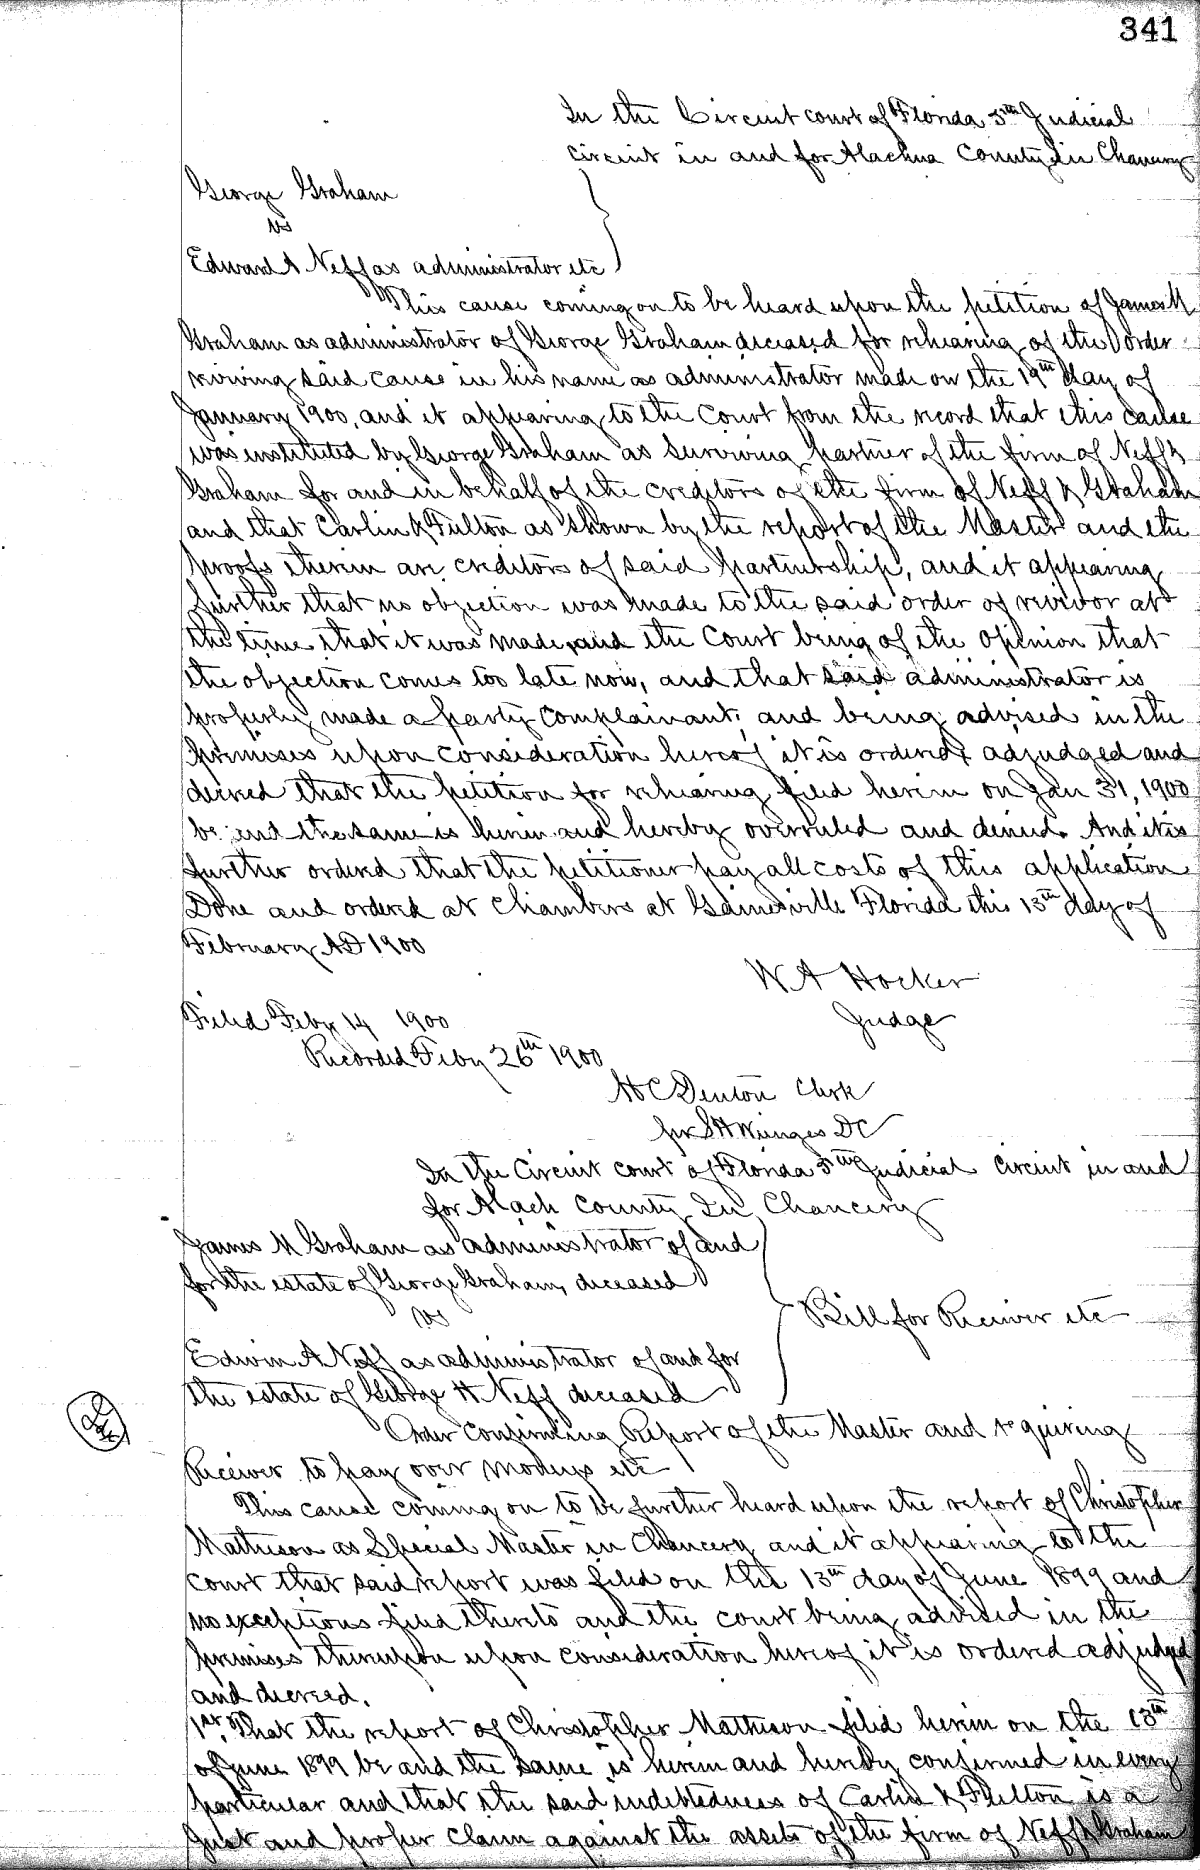 341
In the Circuit court of Florida 5th Judicial
circuit in and for Alachua County In Chancery
George Graham
vs
Edward A Neff as administrator etc
This cause coming on to be heard upon the petition of James M
Graham as administrator of George Graham deceased for rehearing of the order
reviving said cause in his name as administrator made on the 19th day of
January 1900, and it appearing to the Court from the record that this cause
was instituted by George Graham as surviving partner of the firm of Neff &
Graham for and in behalf of the creditors of the firm of Neff & Graham
and that Carlin & Fulton as shown by the report of the Master and the
proofs therein are creditors of said partnership, and it appearing
further that no objection was made to the said order of revivor at
the time that it was made, and the Court being of the opinion that
the objection comes too late now, and that said administrator is
properly made a party complainant, and being advised in the
premises upon consideration hereof it is ordered adjudged and
decreed that the petition for rehearing filed herein on Jan 31, 1900
be and the same is herein and hereby overruled and denied. And it is
further ordered that the petitioner pay all costs of this application
Done and ordered at Chambers at Gainesville Florida this 13th day of
February AD 1900
W A Hocker
Judge
Filed Feby 14 1900
Recorded Feby 26th 1900
H C Denton Clerk
per S H Wienges DC
In the Circuit court of Florida 5th Judicial circuit in and
for Alach County In Chancery
James M Graham as administrator of and
for the estate of George Graham, deceased
vs
Bill for Receiver etc
Edwin A Neff as administrator of and for
the estate of George H Neff deceased
Order confirming Report of the Master and requiring
Receiver to pay over moneys etc
This cause coming on to be further heard upon the report of Christopher
Matheson as Special Master in Chancery and it appearing to the
court that said report was filed on the 13th day of June 1899 and
no exceptions filed thereto and the court being advised in the
premises thereupon upon consideration hereof it is ordered adjudged
and decreed.
1st. That the report of Christopher Matheson filed herein on the 13th
of June 1899 be and the same is herein and hereby confirmed in every
particular and that the said indebtedness of Carlin & Fulton is a
just and proper claim against the assets of the firm of Neff & Graham